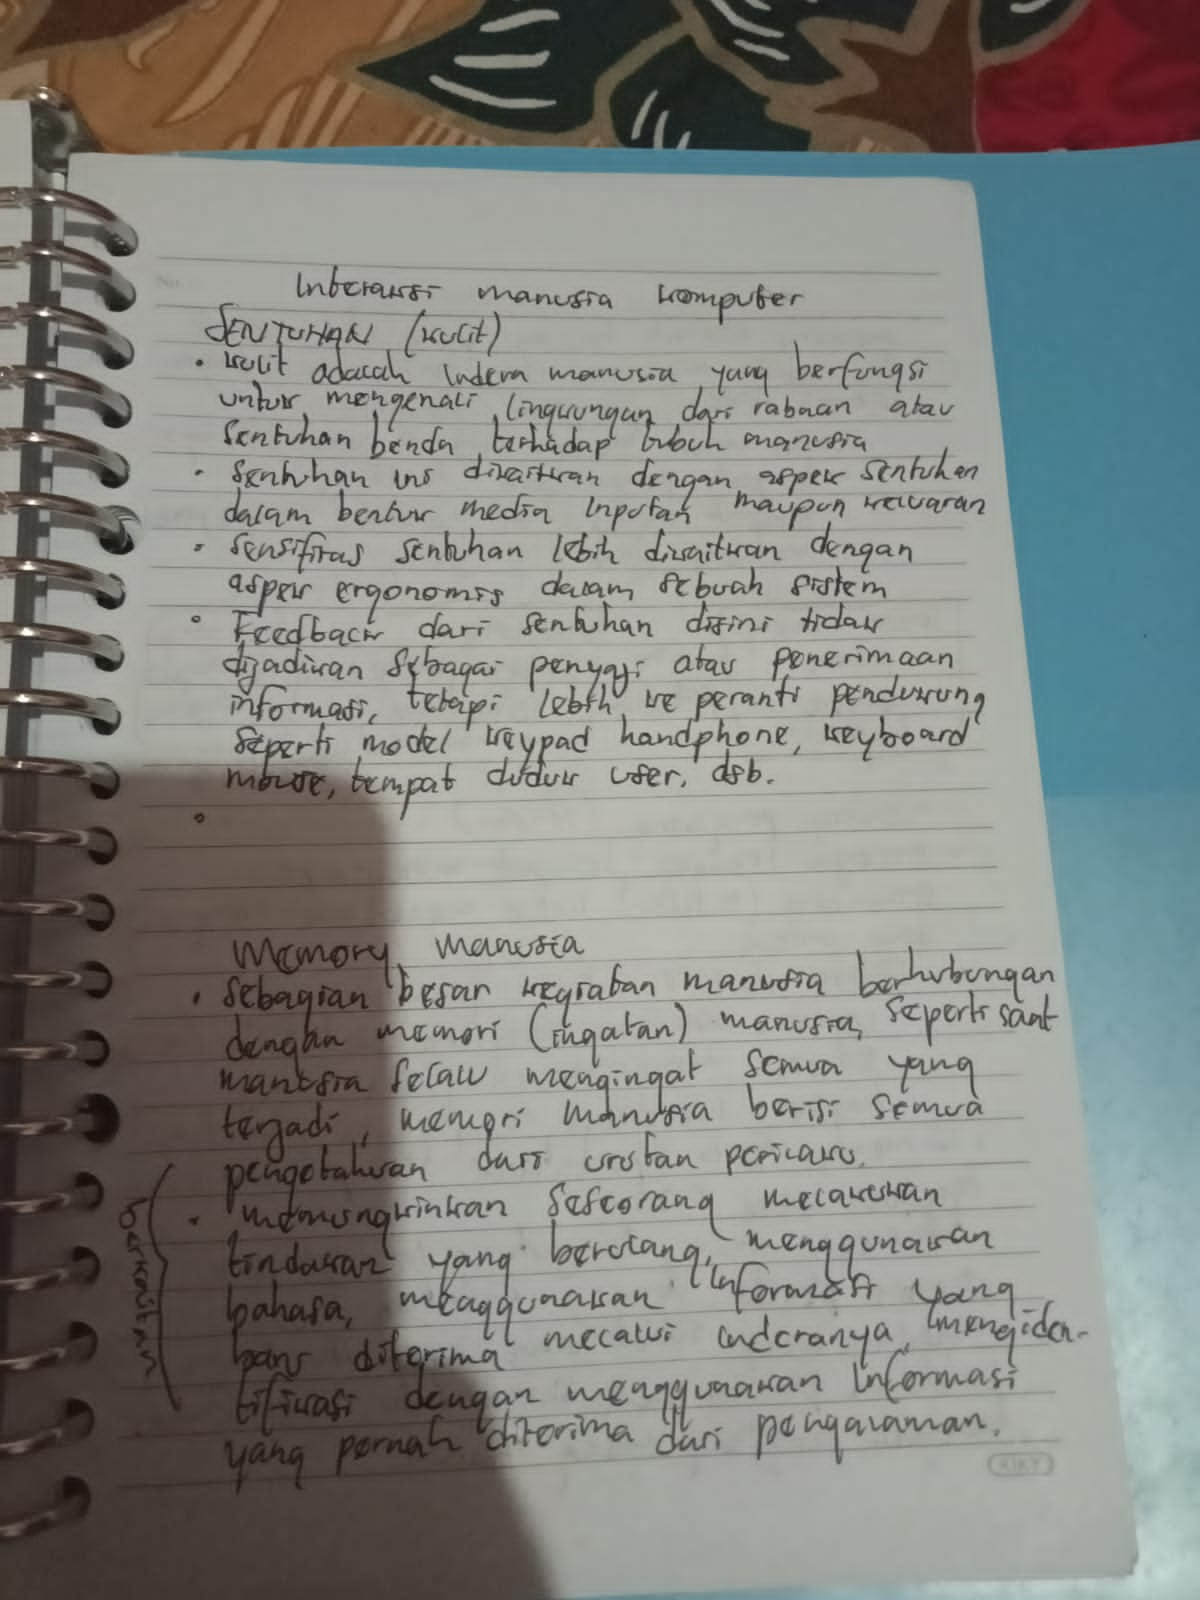 Interaksi manusia komputer
SENTUHAN (kulit)
• kulit adalah Indera manusia yang berfungsi
untuk mengenali lingkungan dari rabaan atau
Sentuhan benda terhadap tubuh manusia
• Sentuhan ini dikaitkan dengan aspek sentuhan
dalam bentuk media Inputan maupun keluaran
• Sensifitas sentuhan lebih dikaitkan dengan
aspek ergonomis dalam sebuah sistem
• Feedback dari sentuhan disini tidak
dijadikan sebagai penyaji atau penerimaan
informasi, tetapi lebih ke peranti pendukung
Seperti model keypad handphone, keyboard
mouse, tempat duduk user, dsb.
•
Memory manusia
• Sebagian besar kegiatan manusia berhubungan
dengan memori (ingatan) manusia, seperti saat
manusia selalu mengingat semua yang
terjadi, memori manusia berisi semua
pengetahuan dari urutan perilaku.
• memungkinkan seseorang melakukan
tindakan yang berulang, menggunakan
bahasa, menggunakan Informasi yang
baru diterima melalui inderanya, mengiden-
tifikasi dengan menggunakan Informasi
yang pernah diterima dari pengalaman.
berkaitan
KIKY